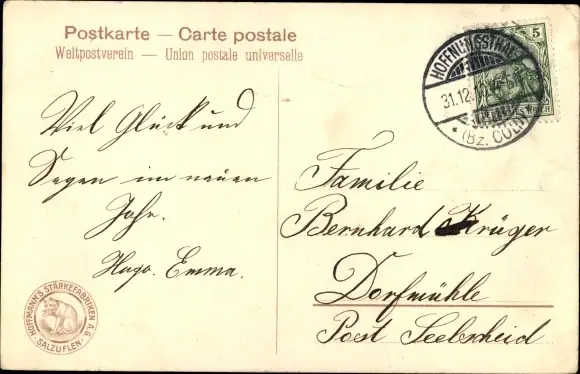 Postkarte — Carte postale
Weltpostverein — Union postale universelle
5
HOFFNUNGSTHAL
31.12.
* (Bz. CÖLN)
Viel Glück und
Segen im neuen
Jahr.
Hugo. Emma.
Familie
Bernhard Krüger
Dorfmühle
Post Seelscheid
HOFFMANN'S STÄRKEFABRIKEN A.G.
SALZUFLEN